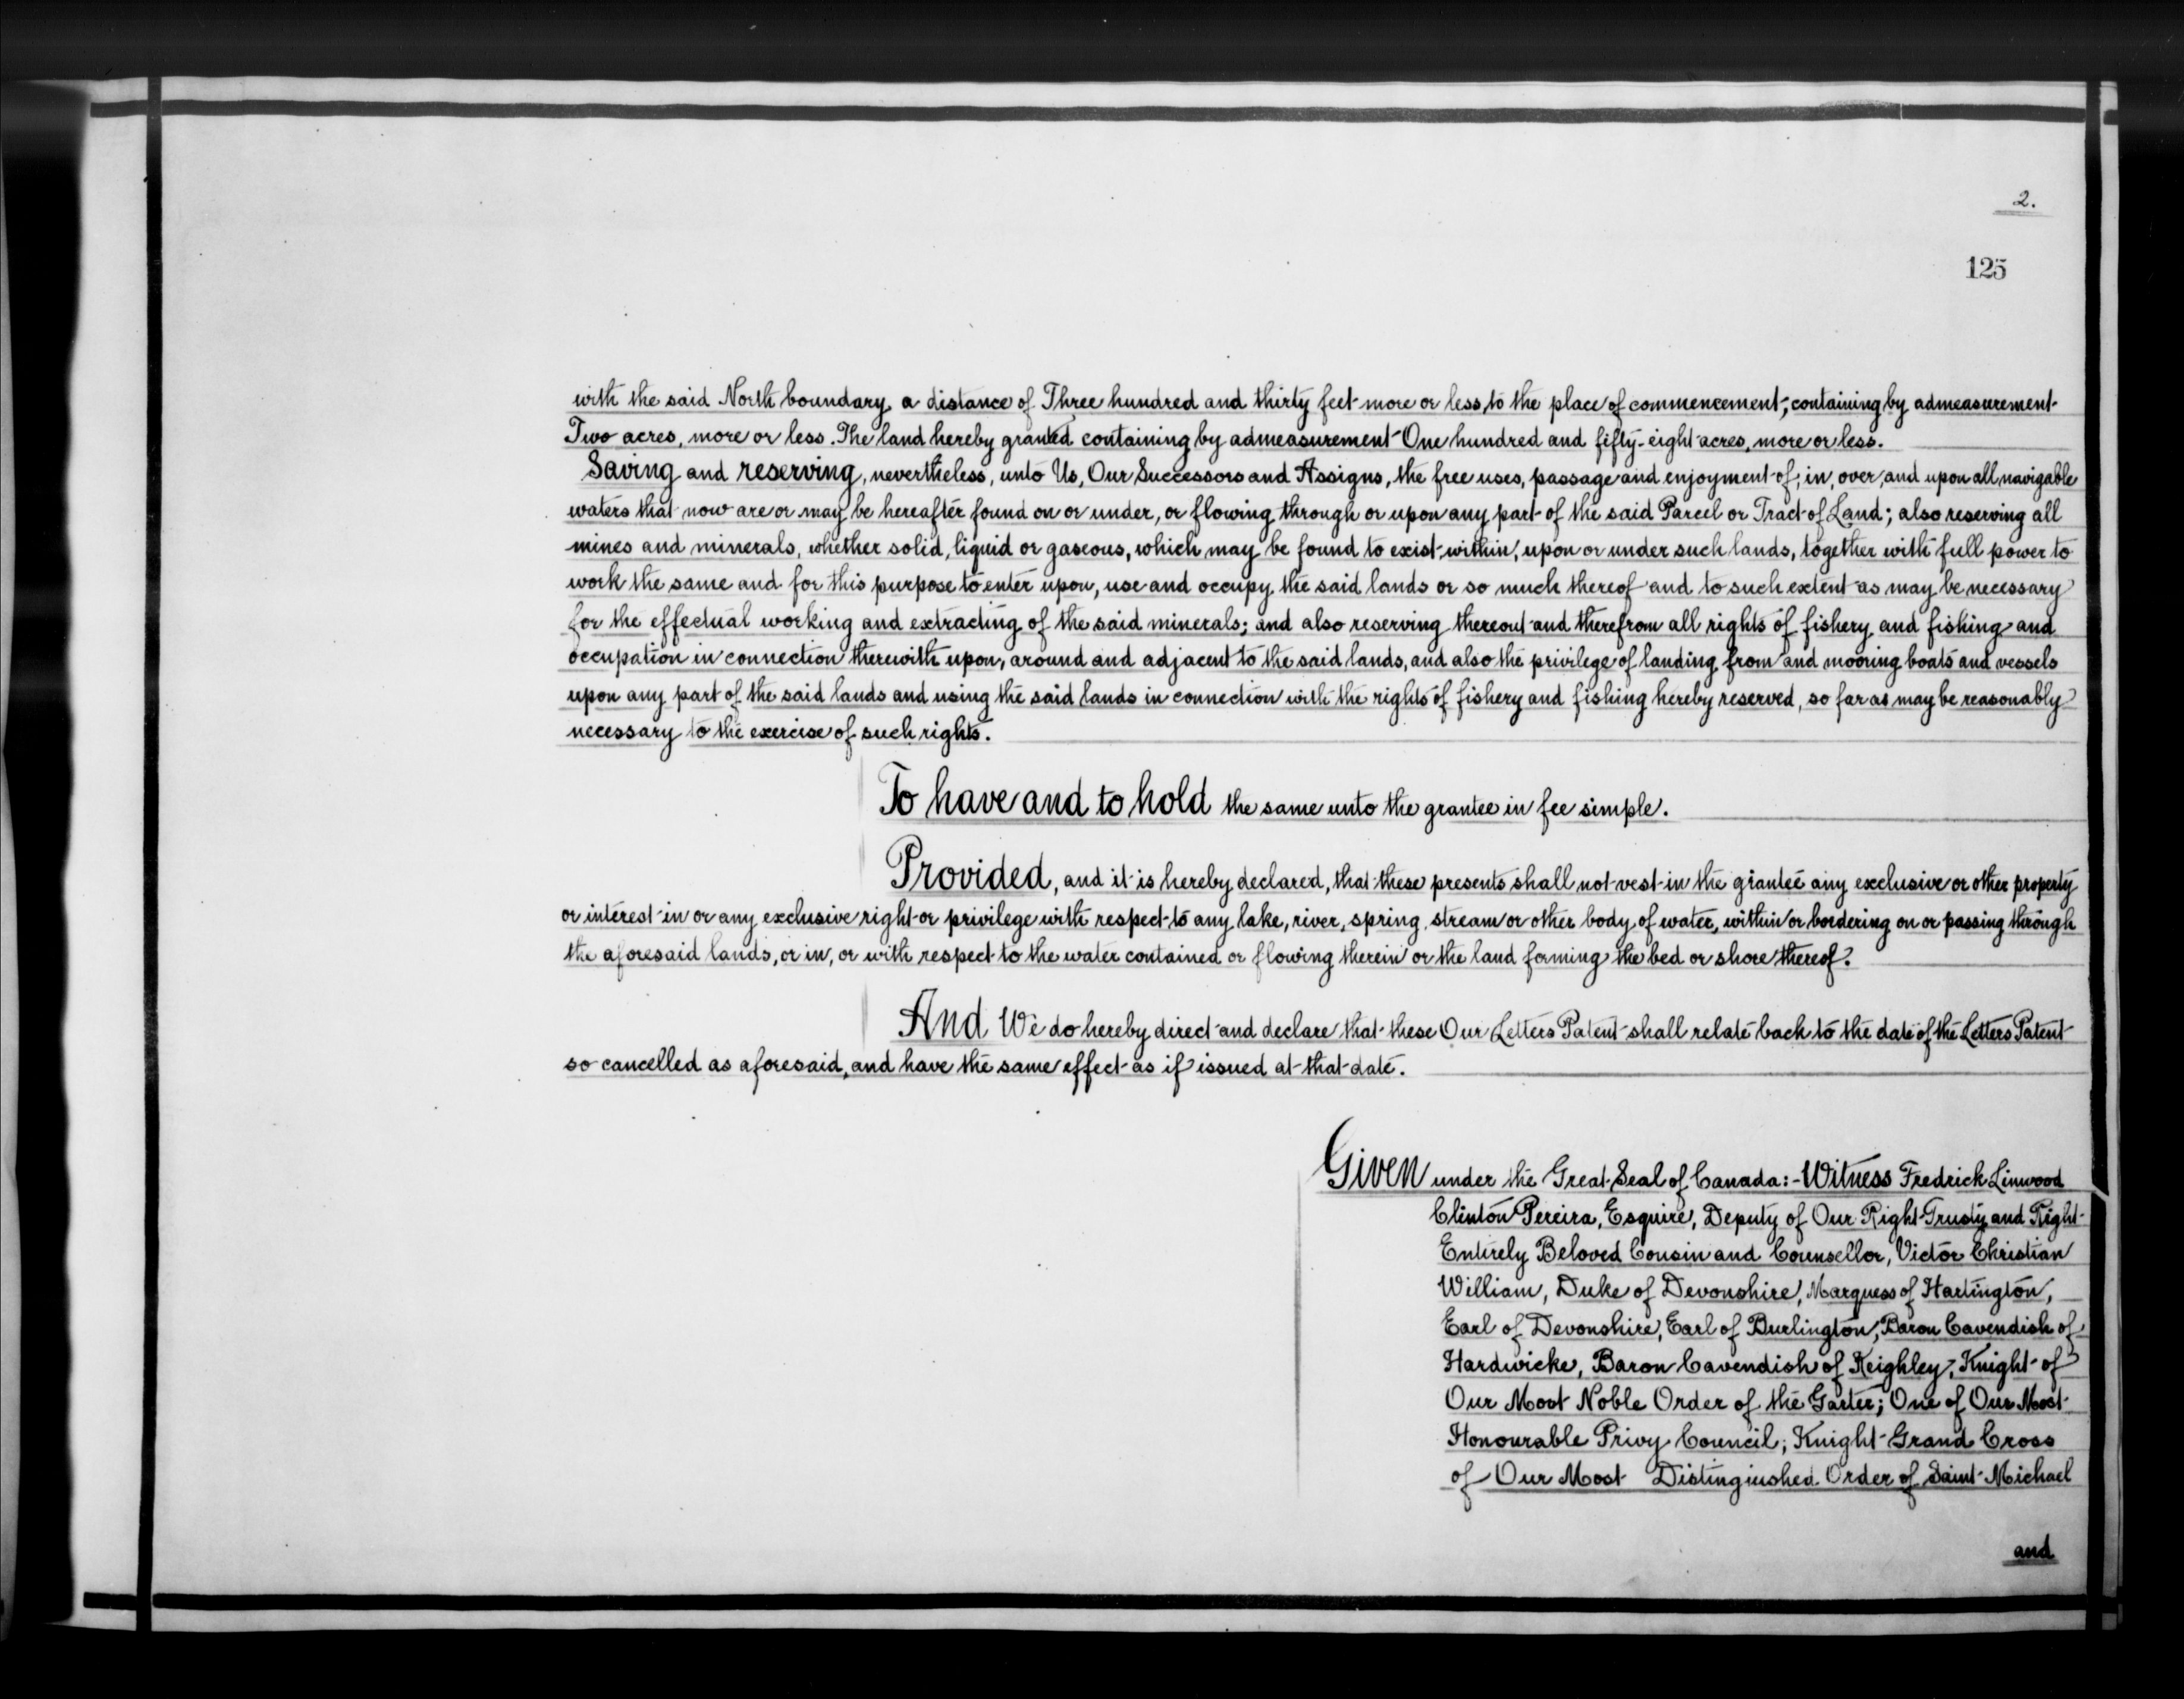 2.
125
with the said North boundary, a distance of Three hundred and thirty feet more or less, to the place of commencement; containing by admeasurement
Two acres, more or less. The land hereby granted containing by admeasurement One hundred and fifty-eight acres, more or less.
Saving and reserving, nevertheless, unto Us, Our Successors and Assigns, the free uses, passage and enjoyment of, in, over, and upon all navigable
waters that now are or may be hereafter found on or under, or flowing through or upon any part of the said Parcel or Tract of Land; also reserving all
mines and minerals, whether solid, liquid or gaseous, which may be found to exist within, upon or under such lands, together with full power to
work the same and for this purpose to enter upon, use and occupy the said lands or so much thereof and to such extent as may be necessary
for the effectual working and extracting of the said minerals; and also reserving thereout and therefrom all rights of fishery and fishing and
occupation in connection therewith upon, around and adjacent to the said lands, and also the privilege of landing from and mooring boats and vessels
upon any part of the said lands and using the said lands in connection with the rights of fishery and fishing hereby reserved, so far as may be reasonably
necessary to the exercise of such rights.
To have and to hold the same unto the grantee in fee simple.
Provided, and it is hereby declared, that these presents shall not vest in the grantee any exclusive or other property
or interest in or any exclusive right or privilege with respect to any lake, river, spring, stream or other body of water, within or bordering on or passing through
the aforesaid lands, or in, or with respect to the water contained or flowing therein or the land forming the bed or shore thereof.
And We do hereby direct and declare that these Our Letters Patent shall relate back to the date of the Letters Patent
so cancelled as aforesaid, and have the same effect as if issued at that date.
Given under the Great Seal of Canada:- Witness Fredrick Linwood
Clinton Pereira, Esquire, Deputy of Our Right Trusty and Right
Entirely Beloved Cousin and Counsellor, Victor Christian
William, Duke of Devonshire, Marquess of Hartington,
Earl of Devonshire, Earl of Burlington, Baron Cavendish of
Hardwicke, Baron Cavendish of Keighley, Knight of
Our Most Noble Order of the Garter; One of Our Most
Honourable Privy Council; Knight Grand Cross
of Our Most Distinguished Order of Saint Michael
and